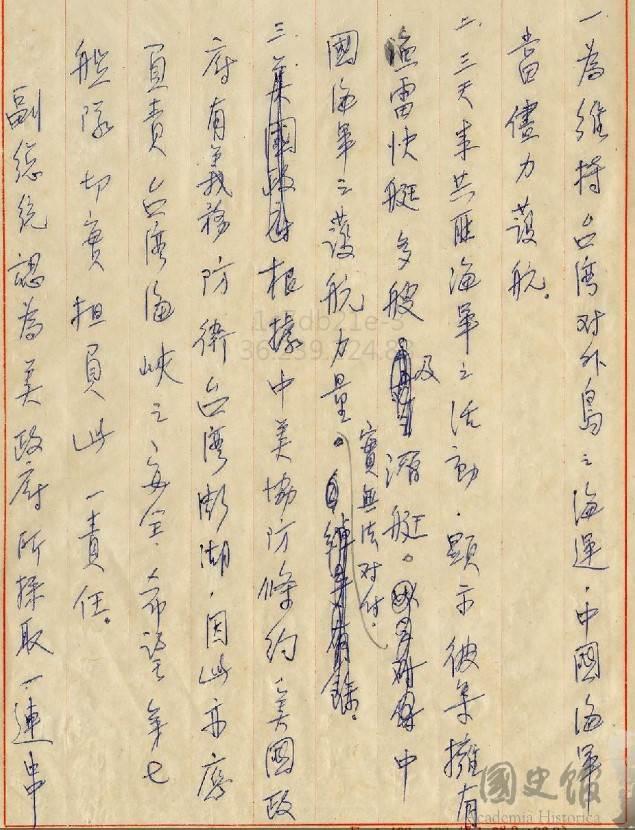 一為維持台灣对外島之海運．中國海軍
当儘力護航。
二．三天來共匪海軍之活動．顯示彼等擁有
魚雷快艇多艘及潛艇。中
國海軍之護航力量。實無法对付．
三．根據中美協防條約美國政
府有義務防衛台灣澎湖．因此亦應
負責台灣海峽之安全．希望第七
艦隊切實担負此一責任。
副總統認為美政府所採取一連串
國史館
Academia Historica